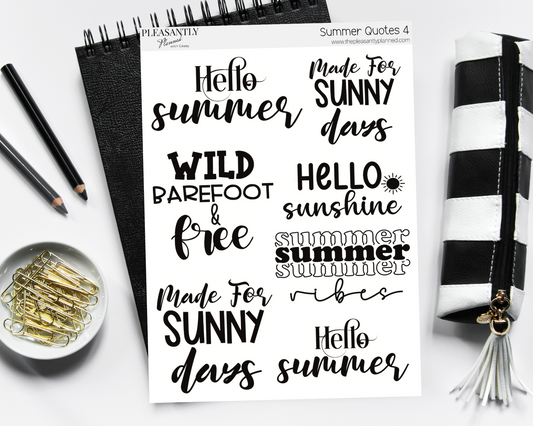 PLEASANTLY
Planned
WITH CASEY
Summer Quotes 4
www.thepleasantlyplanned.com
Hello
summer
Made For
SUNNY
days
WILD
BAREFOOT
&
free
HELLO
sunshine
summer
summer
summer
vibes
Made For
SUNNY
days
Hello
summer